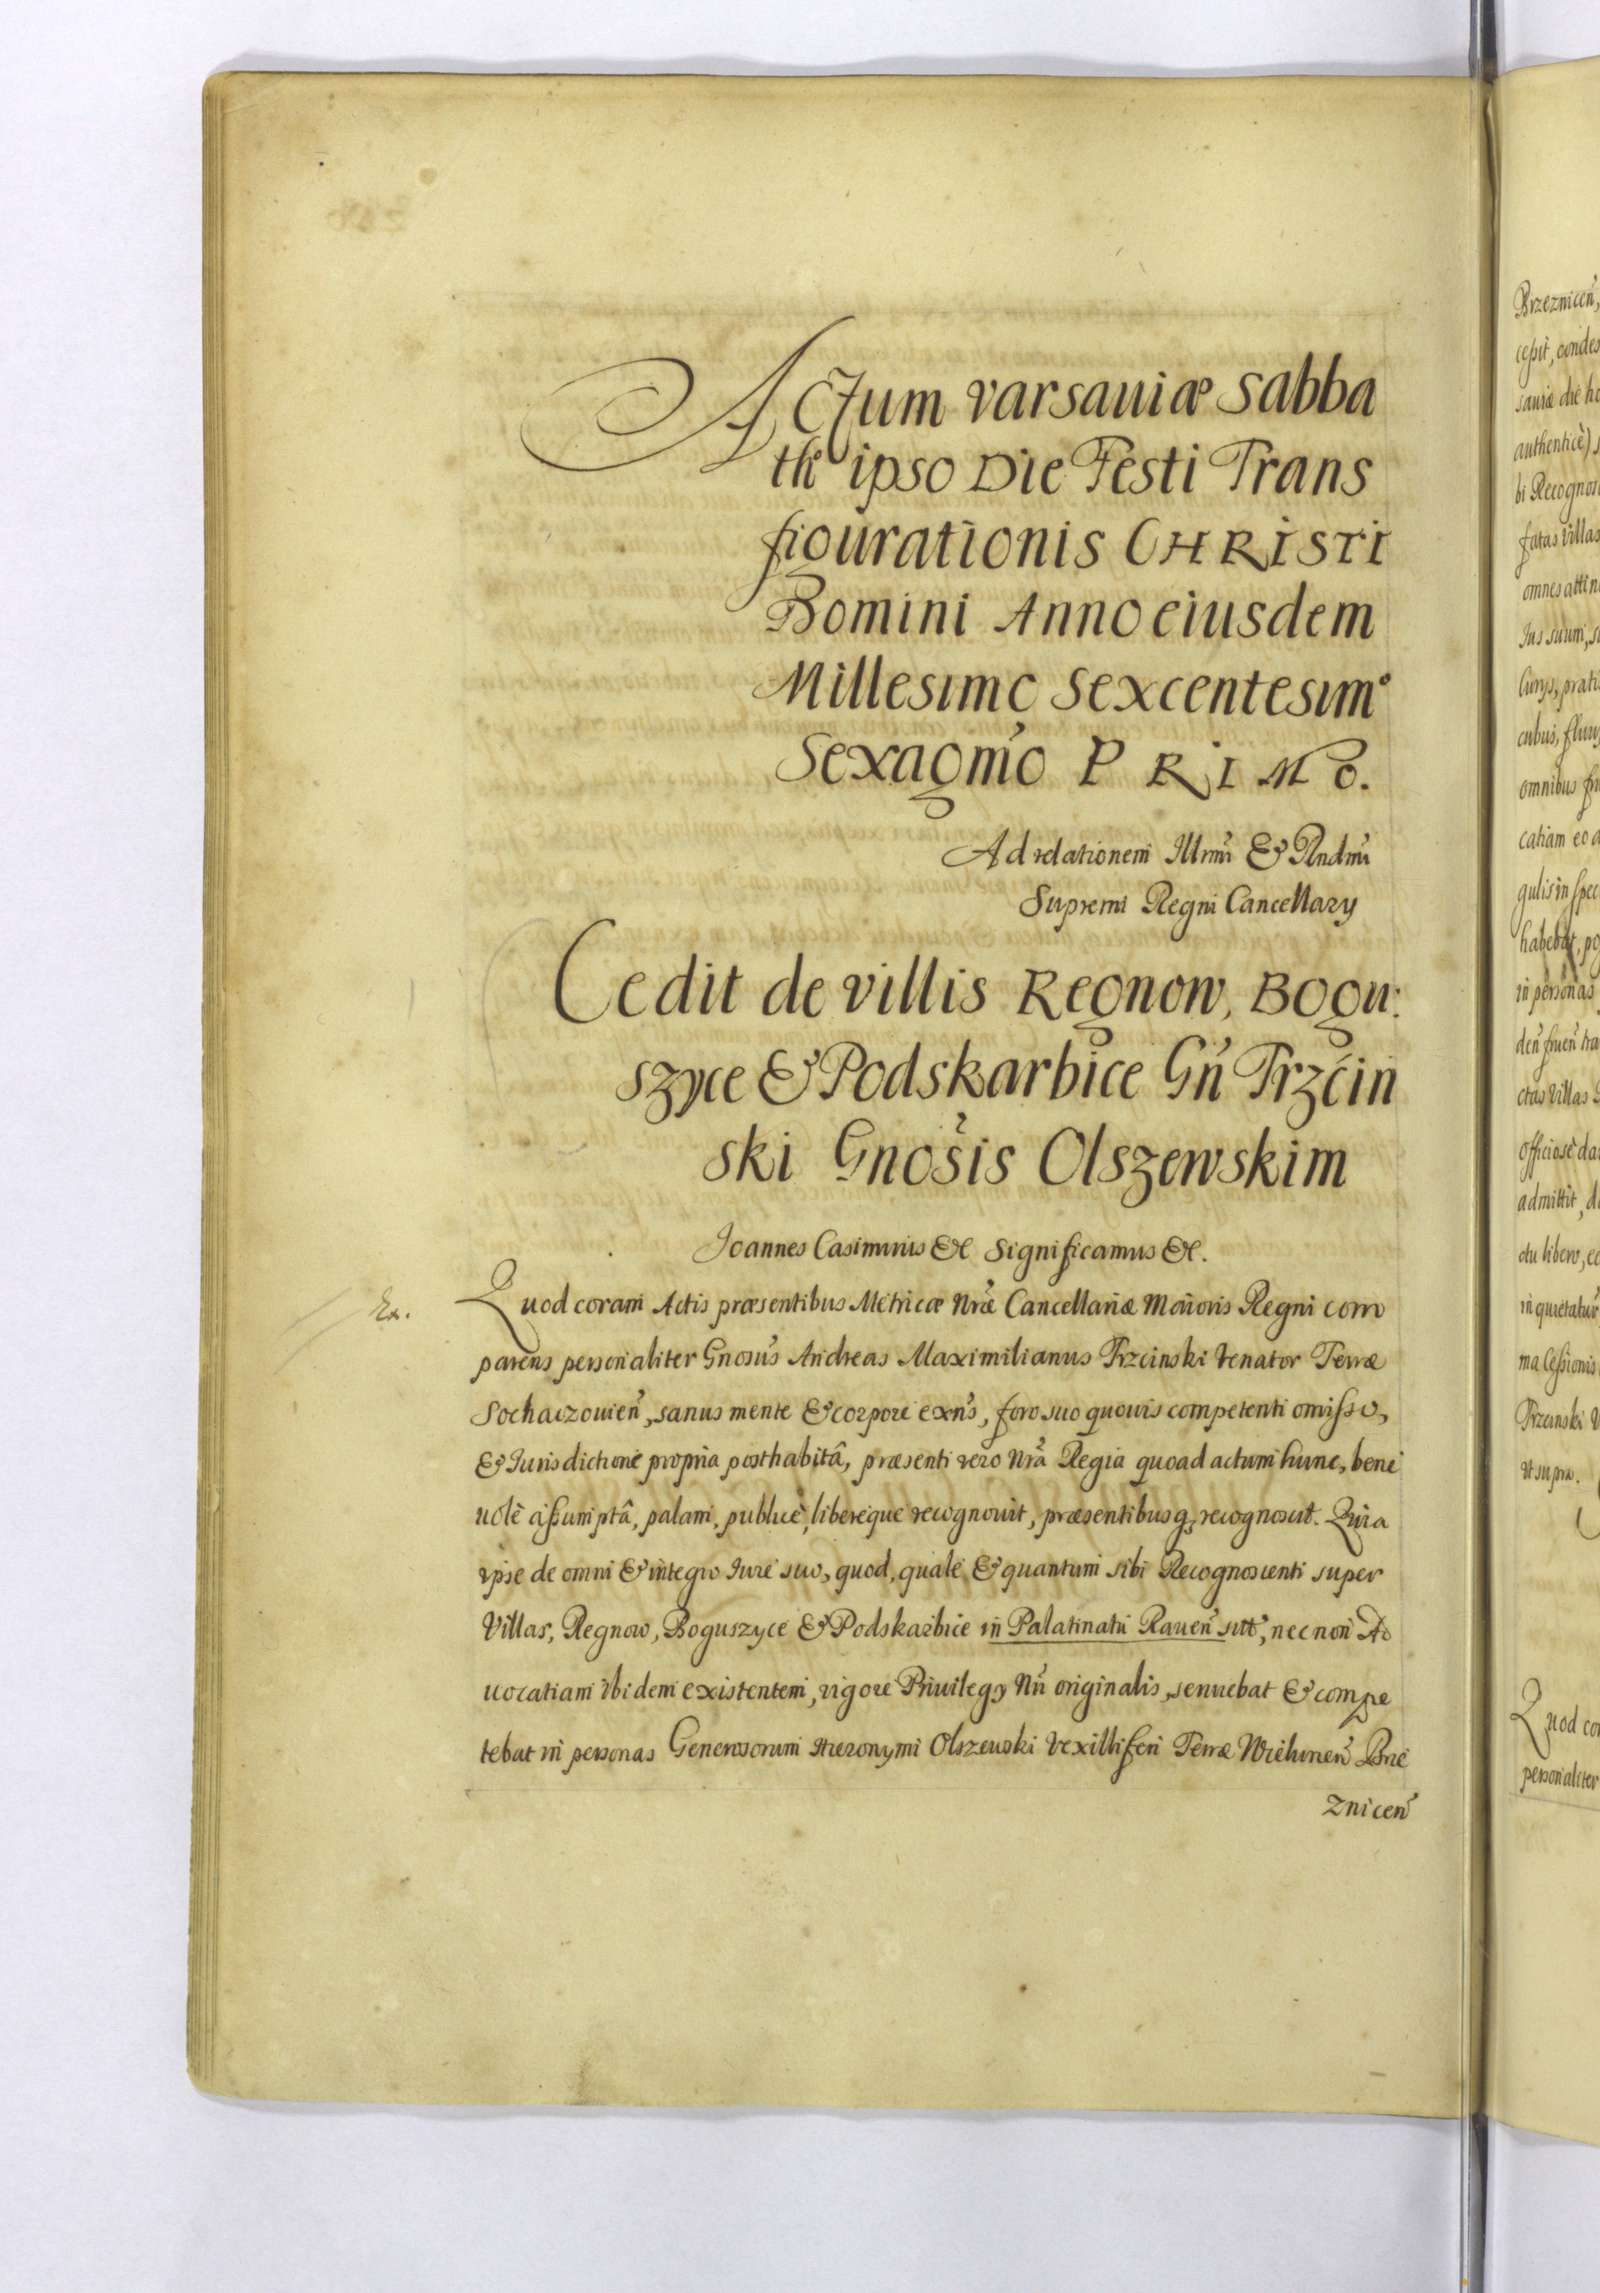 Actum Varsaviæ Sabba
tho ipso Die Festi Trans
figurationis CHRISTI
Domini Anno eiusdem
Millesimo Sexcentesimo
Sexagmo PRIMO.
Ad relationem Illrmi & Rndmi
Supremi Regni Cancellary
Cedit de villis Regnow, Bogu:
szyce & Podskarbice Gn Trzćin
ski Gnosis Olszewskim
Joannes Casimirus &c Significamus &c.
Ex.
Quod coram Actis præsentibus Metricæ Nræ Cancellariæ Maioris Regni com
parens personaliter Gnosus Andreas Maximilianus Trzcinski Venator Terræ
Sochaczouien, sanus mente & corpore exns, foro suo quouis competenti omisso,
& Iurisdictione propria posthabitâ, præsenti vero Nrâ Regia quoad actum hunc, bene
uolè assumptâ, palam, publicè, liberèque recognouit, præsentibusq, recognoscit. Quia
ipse de omni & integro Iure suo, quod, quale & quantum sibi Recognoscenti super
Villas, Regnow, Boguszyce & Podskarbice in Palatinatu Rauen sitt, necnon Ad
uocatiam ibidem existentem, vigore Priuilegy Nri originalis, seruiebat & compe
tebat in personas Generosorum Hieronymi Olszewski Vexilliferi Terræ Wielunen Brze
znicen
Brzeznicen,
cessit, condes
authenticè) s
bi Recognos
fatas Villas
omnes attin
Ius suum, s
omnibus fru
catiam eo a
gulis in spec
habebat, po
in personas
ctas Villas
officiosè da
admittit, d
ctu libero, ec
inquietatur
ma Cessionis
Trzcinski V
vt supra.
Quod cor
personaliter